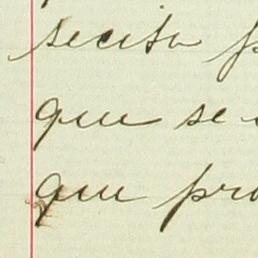 secito p
que se
que pro